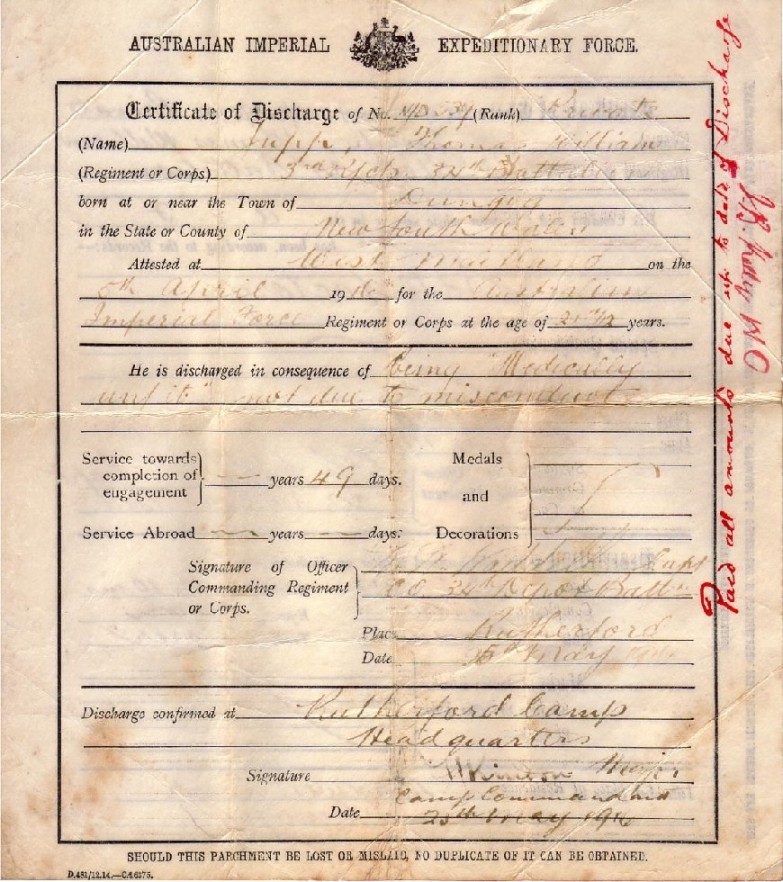 AUSTRALIAN IMPERIAL EXPEDITIONARY FORCE.
Certificate of Discharge of No. (Rank) Private
(Name) Tupp, Thomas William
(Regiment or Corps) 3rd 34th Battalion
born at or near the Town of Dungog
in the State or County of New South Wales
Attested at West Maitland on the
5th April 1916 for the Australian
Imperial Force Regiment or Corps at the age of years.
He is discharged in consequence of being "Medically
unfit" not due to misconduct
Service towards completion of engagement — years 49 days.
Medals and Decorations
Service Abroad — years — days.
Signature of Officer Commanding Regiment or Corps. Capt
OC. 34th Depot Battn
Place Rutherford
Date May
Discharge confirmed at Rutherford Camp
Headquarters
Signature Major
Camp Commandant
Date 25th May 1916
SHOULD THIS PARCHMENT BE LOST OR MISLAID, NO DUPLICATE OF IT CAN BE OBTAINED.
D.481/12.14.—C.6375.
Paid all amounts due up to date of Discharge
WO